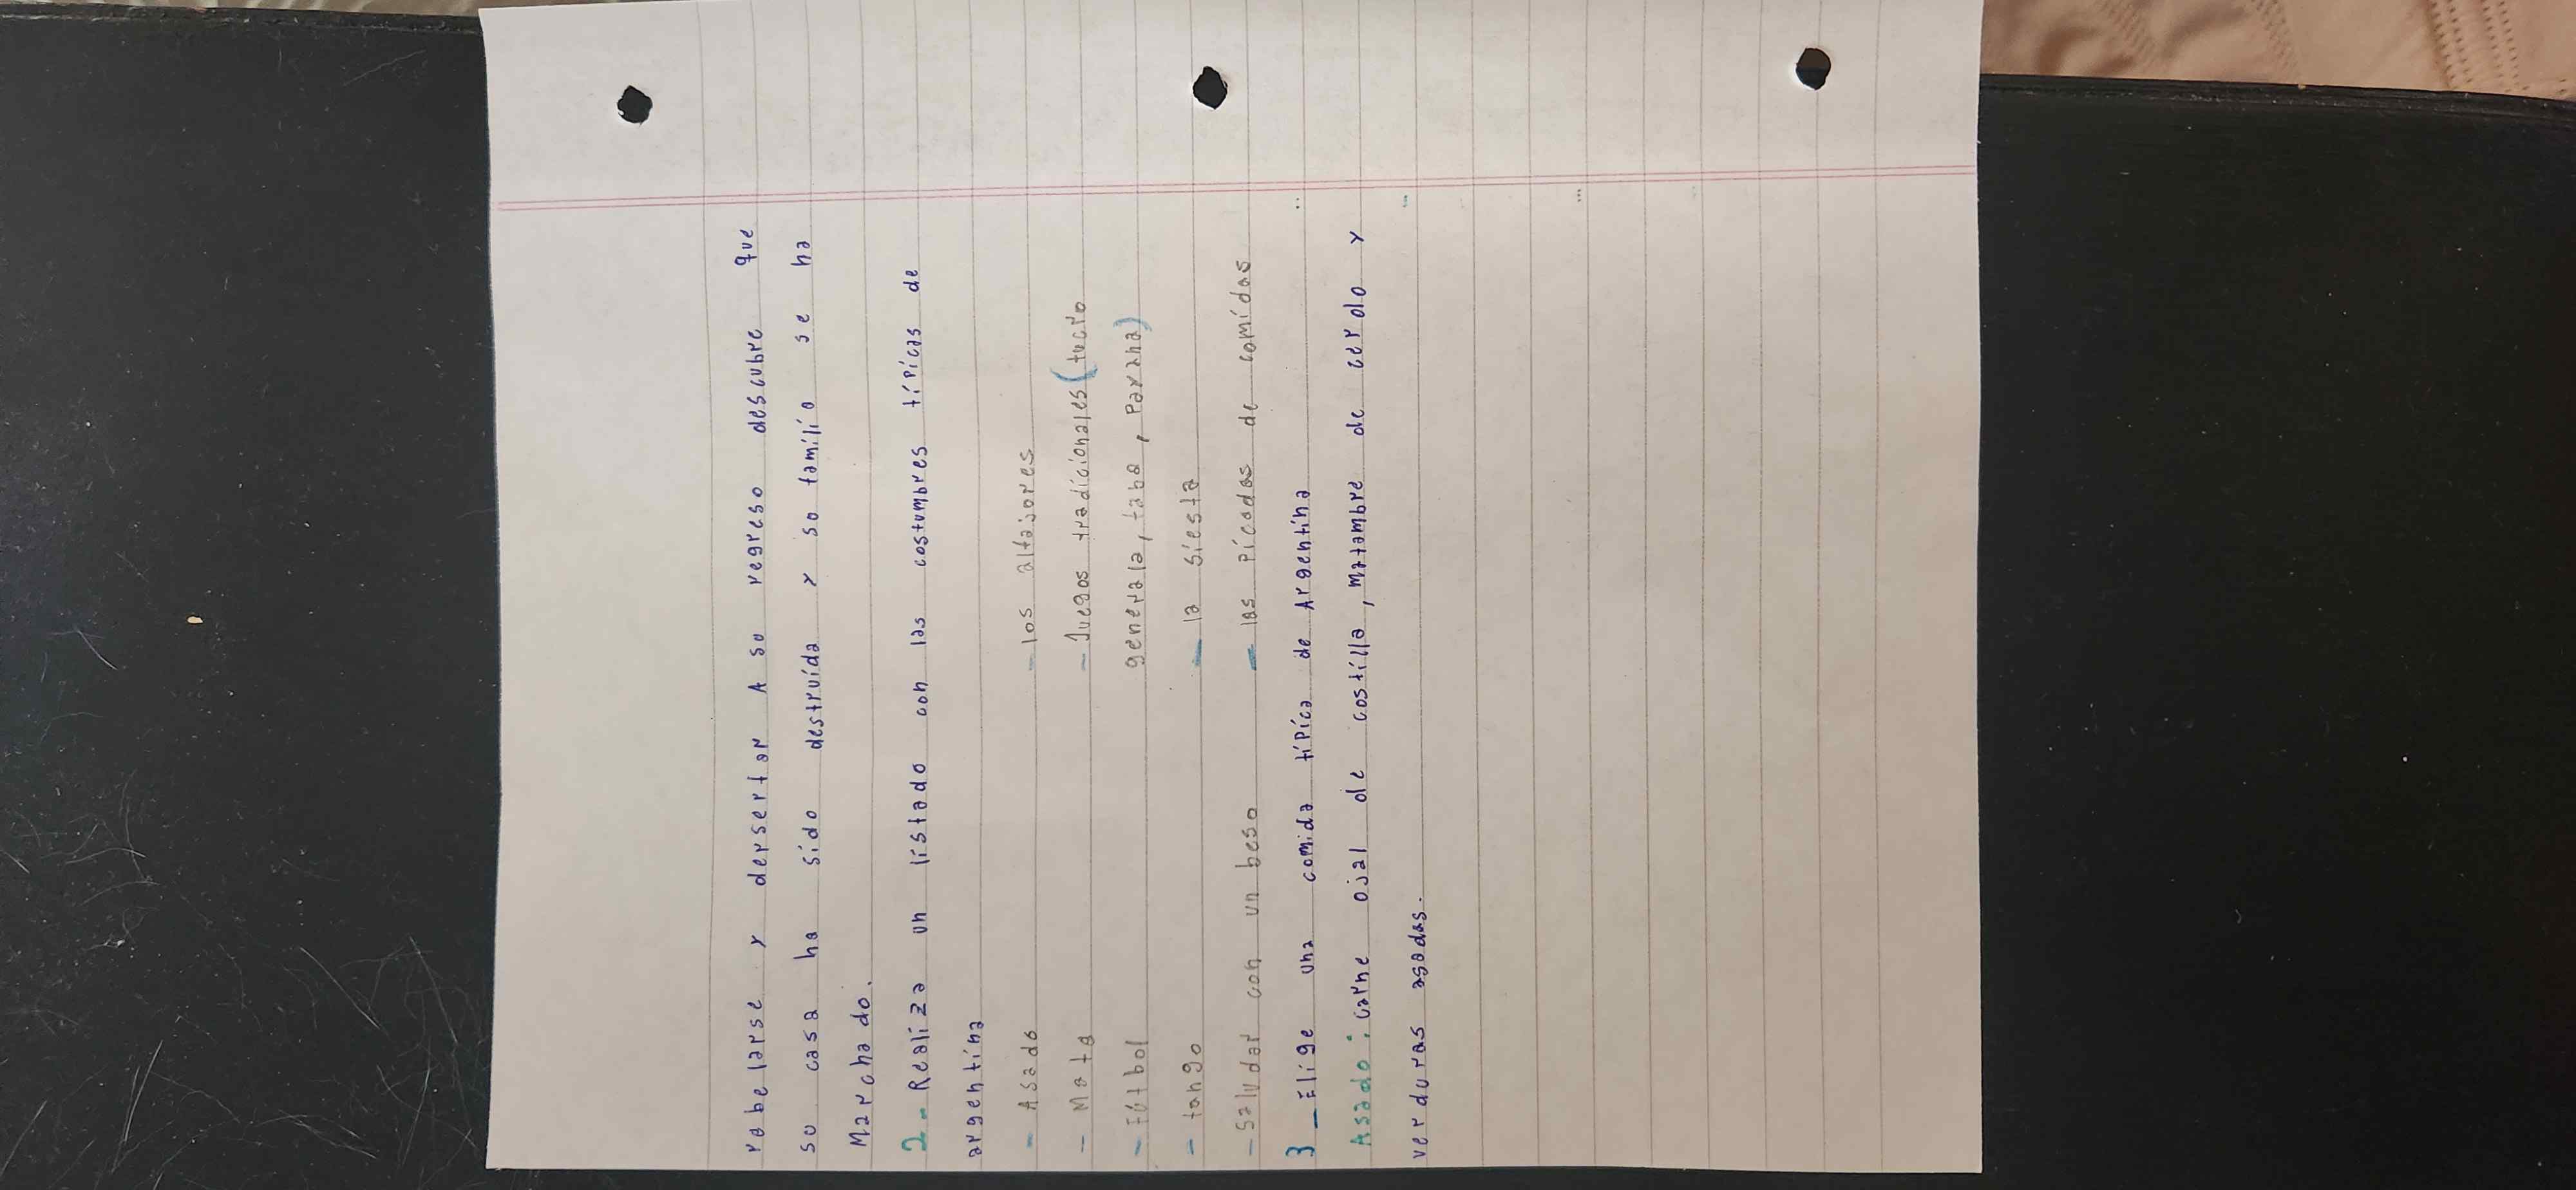 rabelarse y dersertar A su regreso descubre que
su casa ha sido destruida y su familio se ha
Marchado.
2- Realiza un listado con las costumbres típicas de
argentina
- Asado - los alfajores
- Mata - Juegos tradicionales (tucro
- Fútbol generala, taba, Payana)
- tango - la siesta
- Saludar con un beso - las picadas de comidas
3 - Elige una comida típica de Argentina
Asado: carne ojal de costilla, Matambre de cerdo y
verduras asadas.